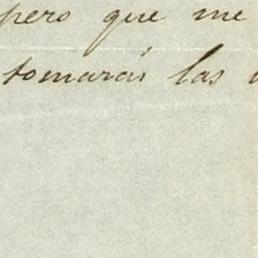 pero que me
tomarás las